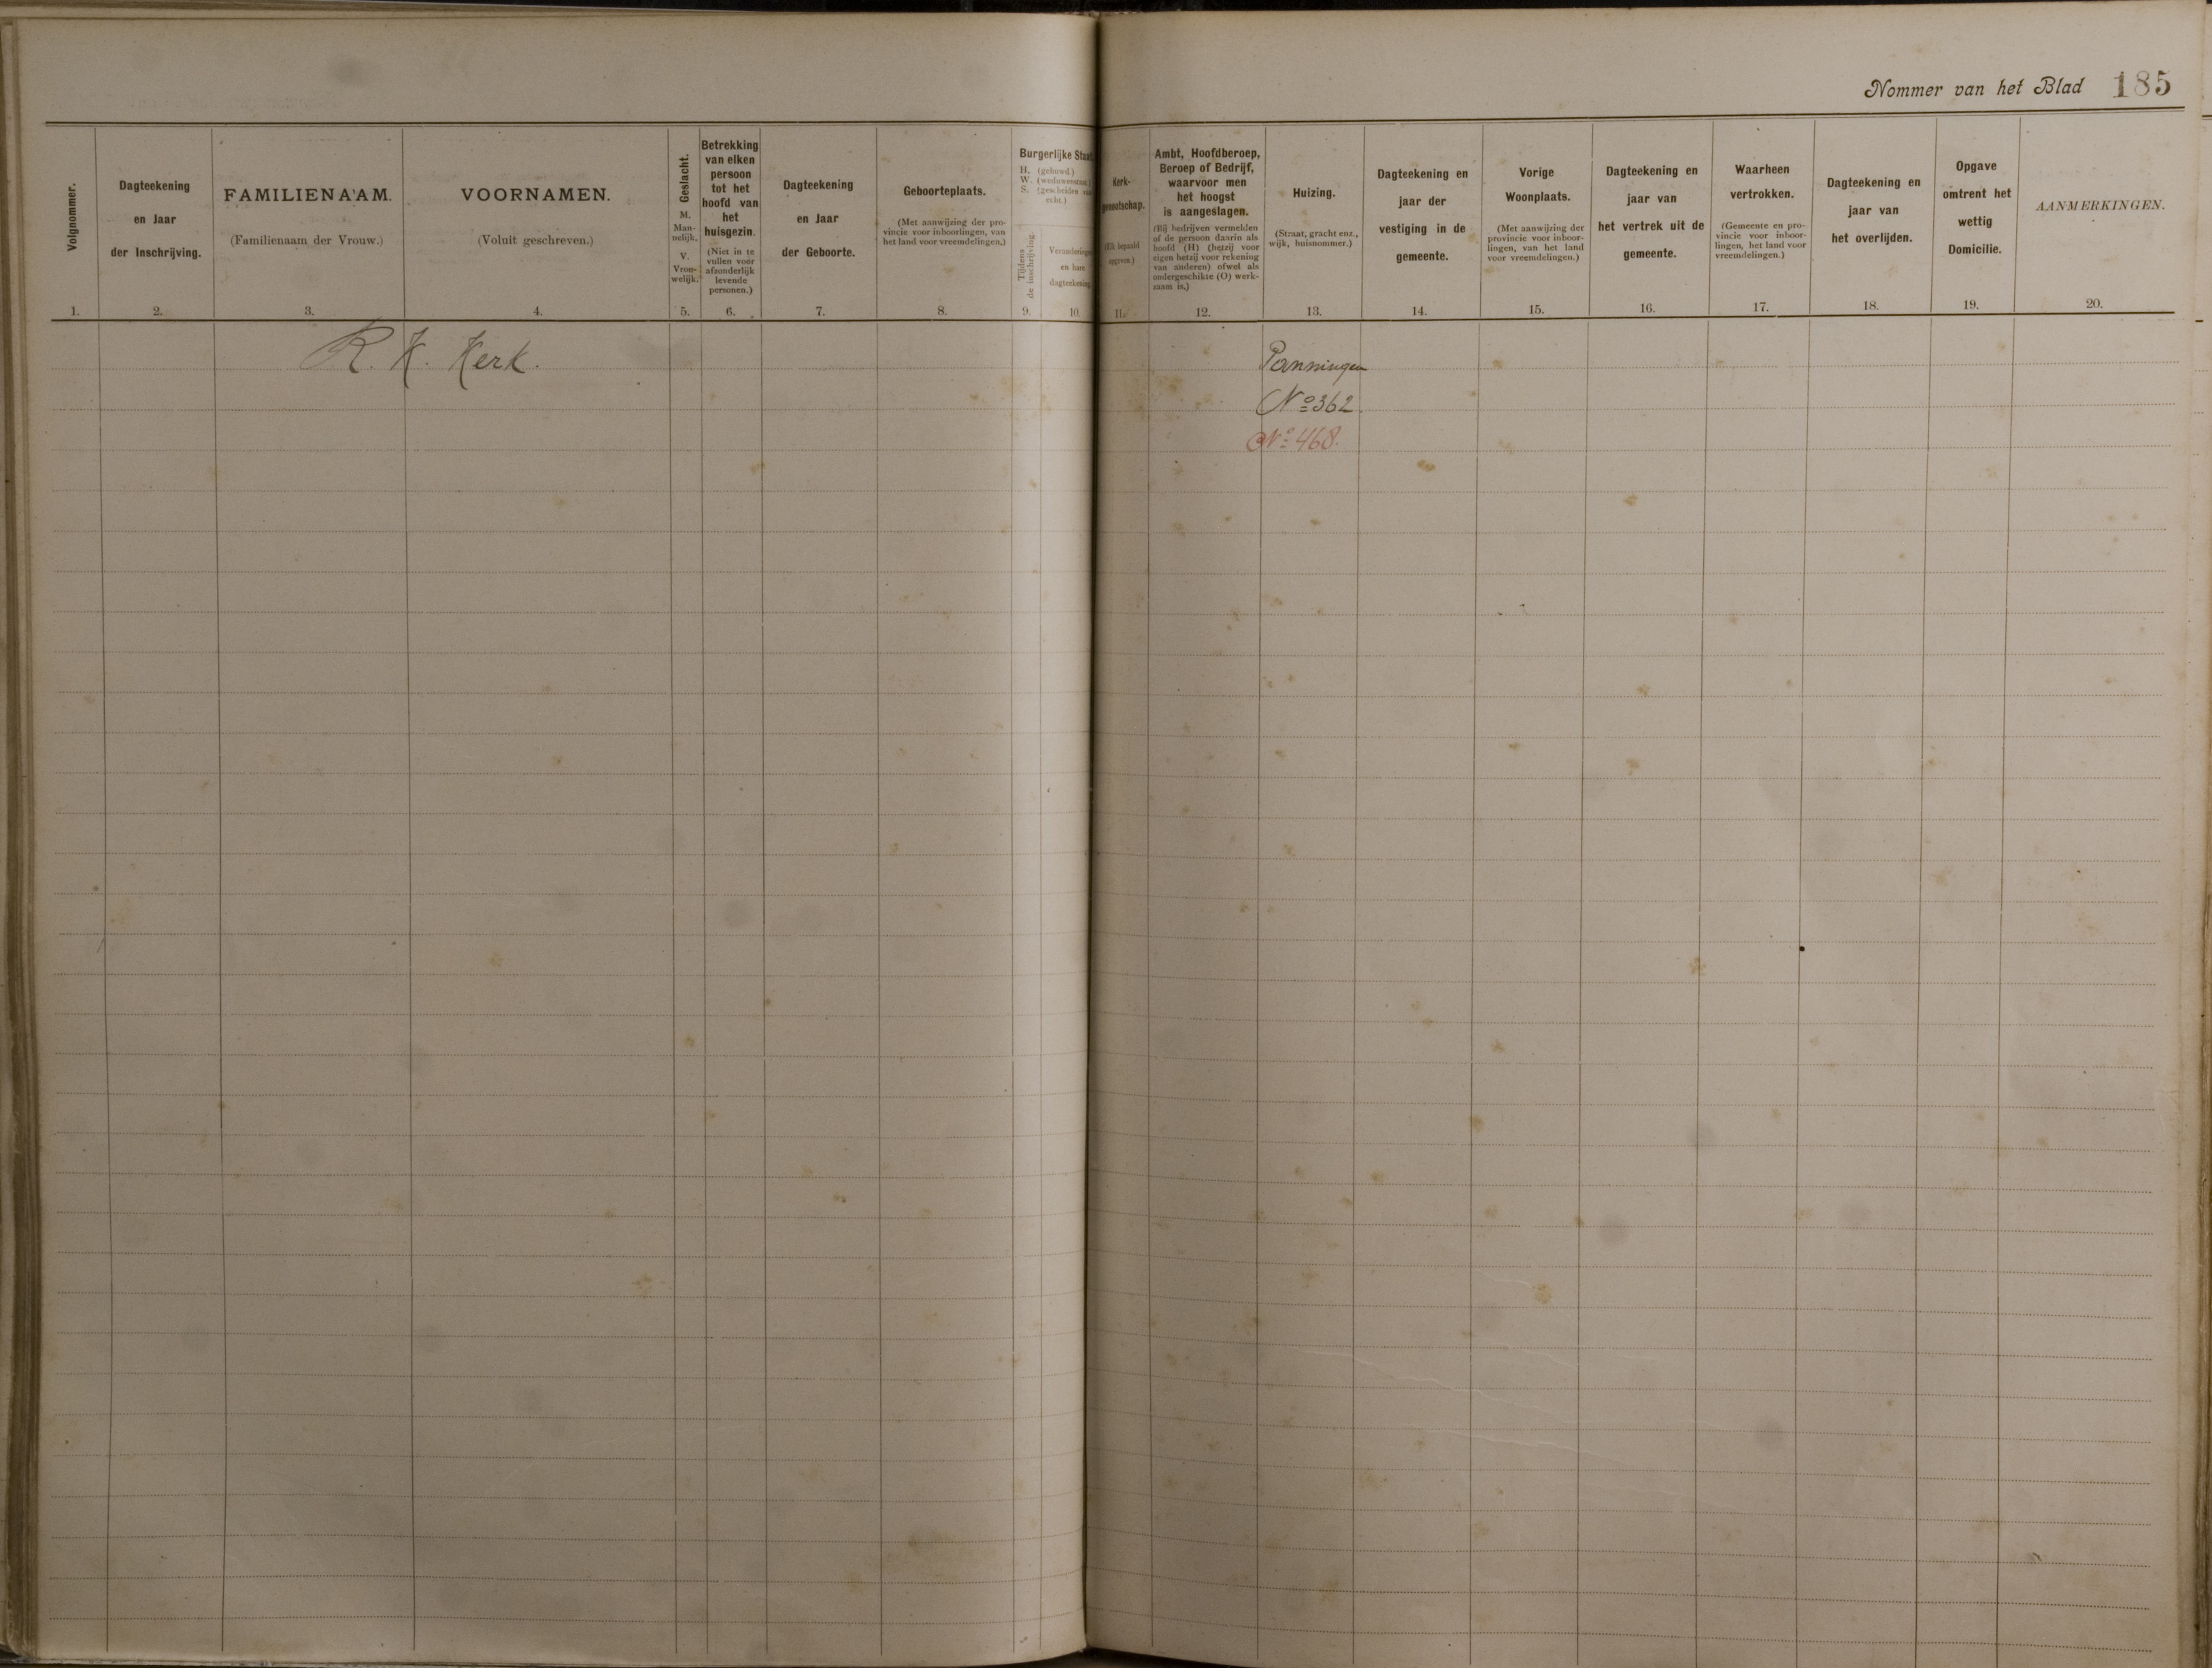 Nommer van het Blad 185
Volgnommer.
1.
Dagteekening
en Jaar
der Inschrijving.
2.
FAMILIENAAM.
(Familienaam der Vrouw.)
3.
VOORNAMEN.
(Voluit geschreven.)
4.
Geslacht.
M.
Man-
nelijk.
V.
Vrou-
welijk.
5.
Betrekking
van elken
persoon
tot het
hoofd van
het
huisgezin.
(Niet in te
vullen voor
afzonderlijk
levende
personen.)
6.
Dagteekening
en Jaar
der Geboorte.
7.
Geboorteplaats.
(Met aanwijzing der pro-
vincie voor inboorlingen, van
het land voor vreemdelingen.)
8.
Burgerlijke Staat
H. (gehuwd.)
W. (weduwestaat.)
S. (gescheiden van
echt.)
Tijdens
de inschrijving.
9.
Veranderingen
en hare
dagteekening.
10.
Kerk-
genootschap.
(Elk bepaald
opgeven.)
11.
Ambt, Hoofdberoep,
Beroep of Bedrijf,
waarvoor men
het hoogst
is aangeslagen.
(Bij bedrijven vermelden
of de persoon daarin als
hoofd (H) (hetzij voor
eigen hetzij voor rekening
van anderen) ofwel als
ondergeschikte (O) werk-
zaam is.)
12.
Huizing.
(Straat, gracht enz.,
wijk, huisnommer.)
13.
Dagteekening en
jaar der
vestiging in de
gemeente.
14.
Vorige
Woonplaats.
(Met aanwijzing der
provincie voor inboor-
lingen, van het land
voor vreemdelingen.)
15.
Dagteekening en
jaar van
het vertrek uit de
gemeente.
16.
Waarheen
vertrokken.
(Gemeente en pro-
vincie voor inboor-
lingen, het land voor
vreemdelingen.)
17.
Dagteekening en
jaar van
het overlijden.
18.
Opgave
omtrent het
wettig
Domicilie.
19.
AANMERKINGEN.
20.
R. K. Kerk.
Panningen
No 362.
No 468.